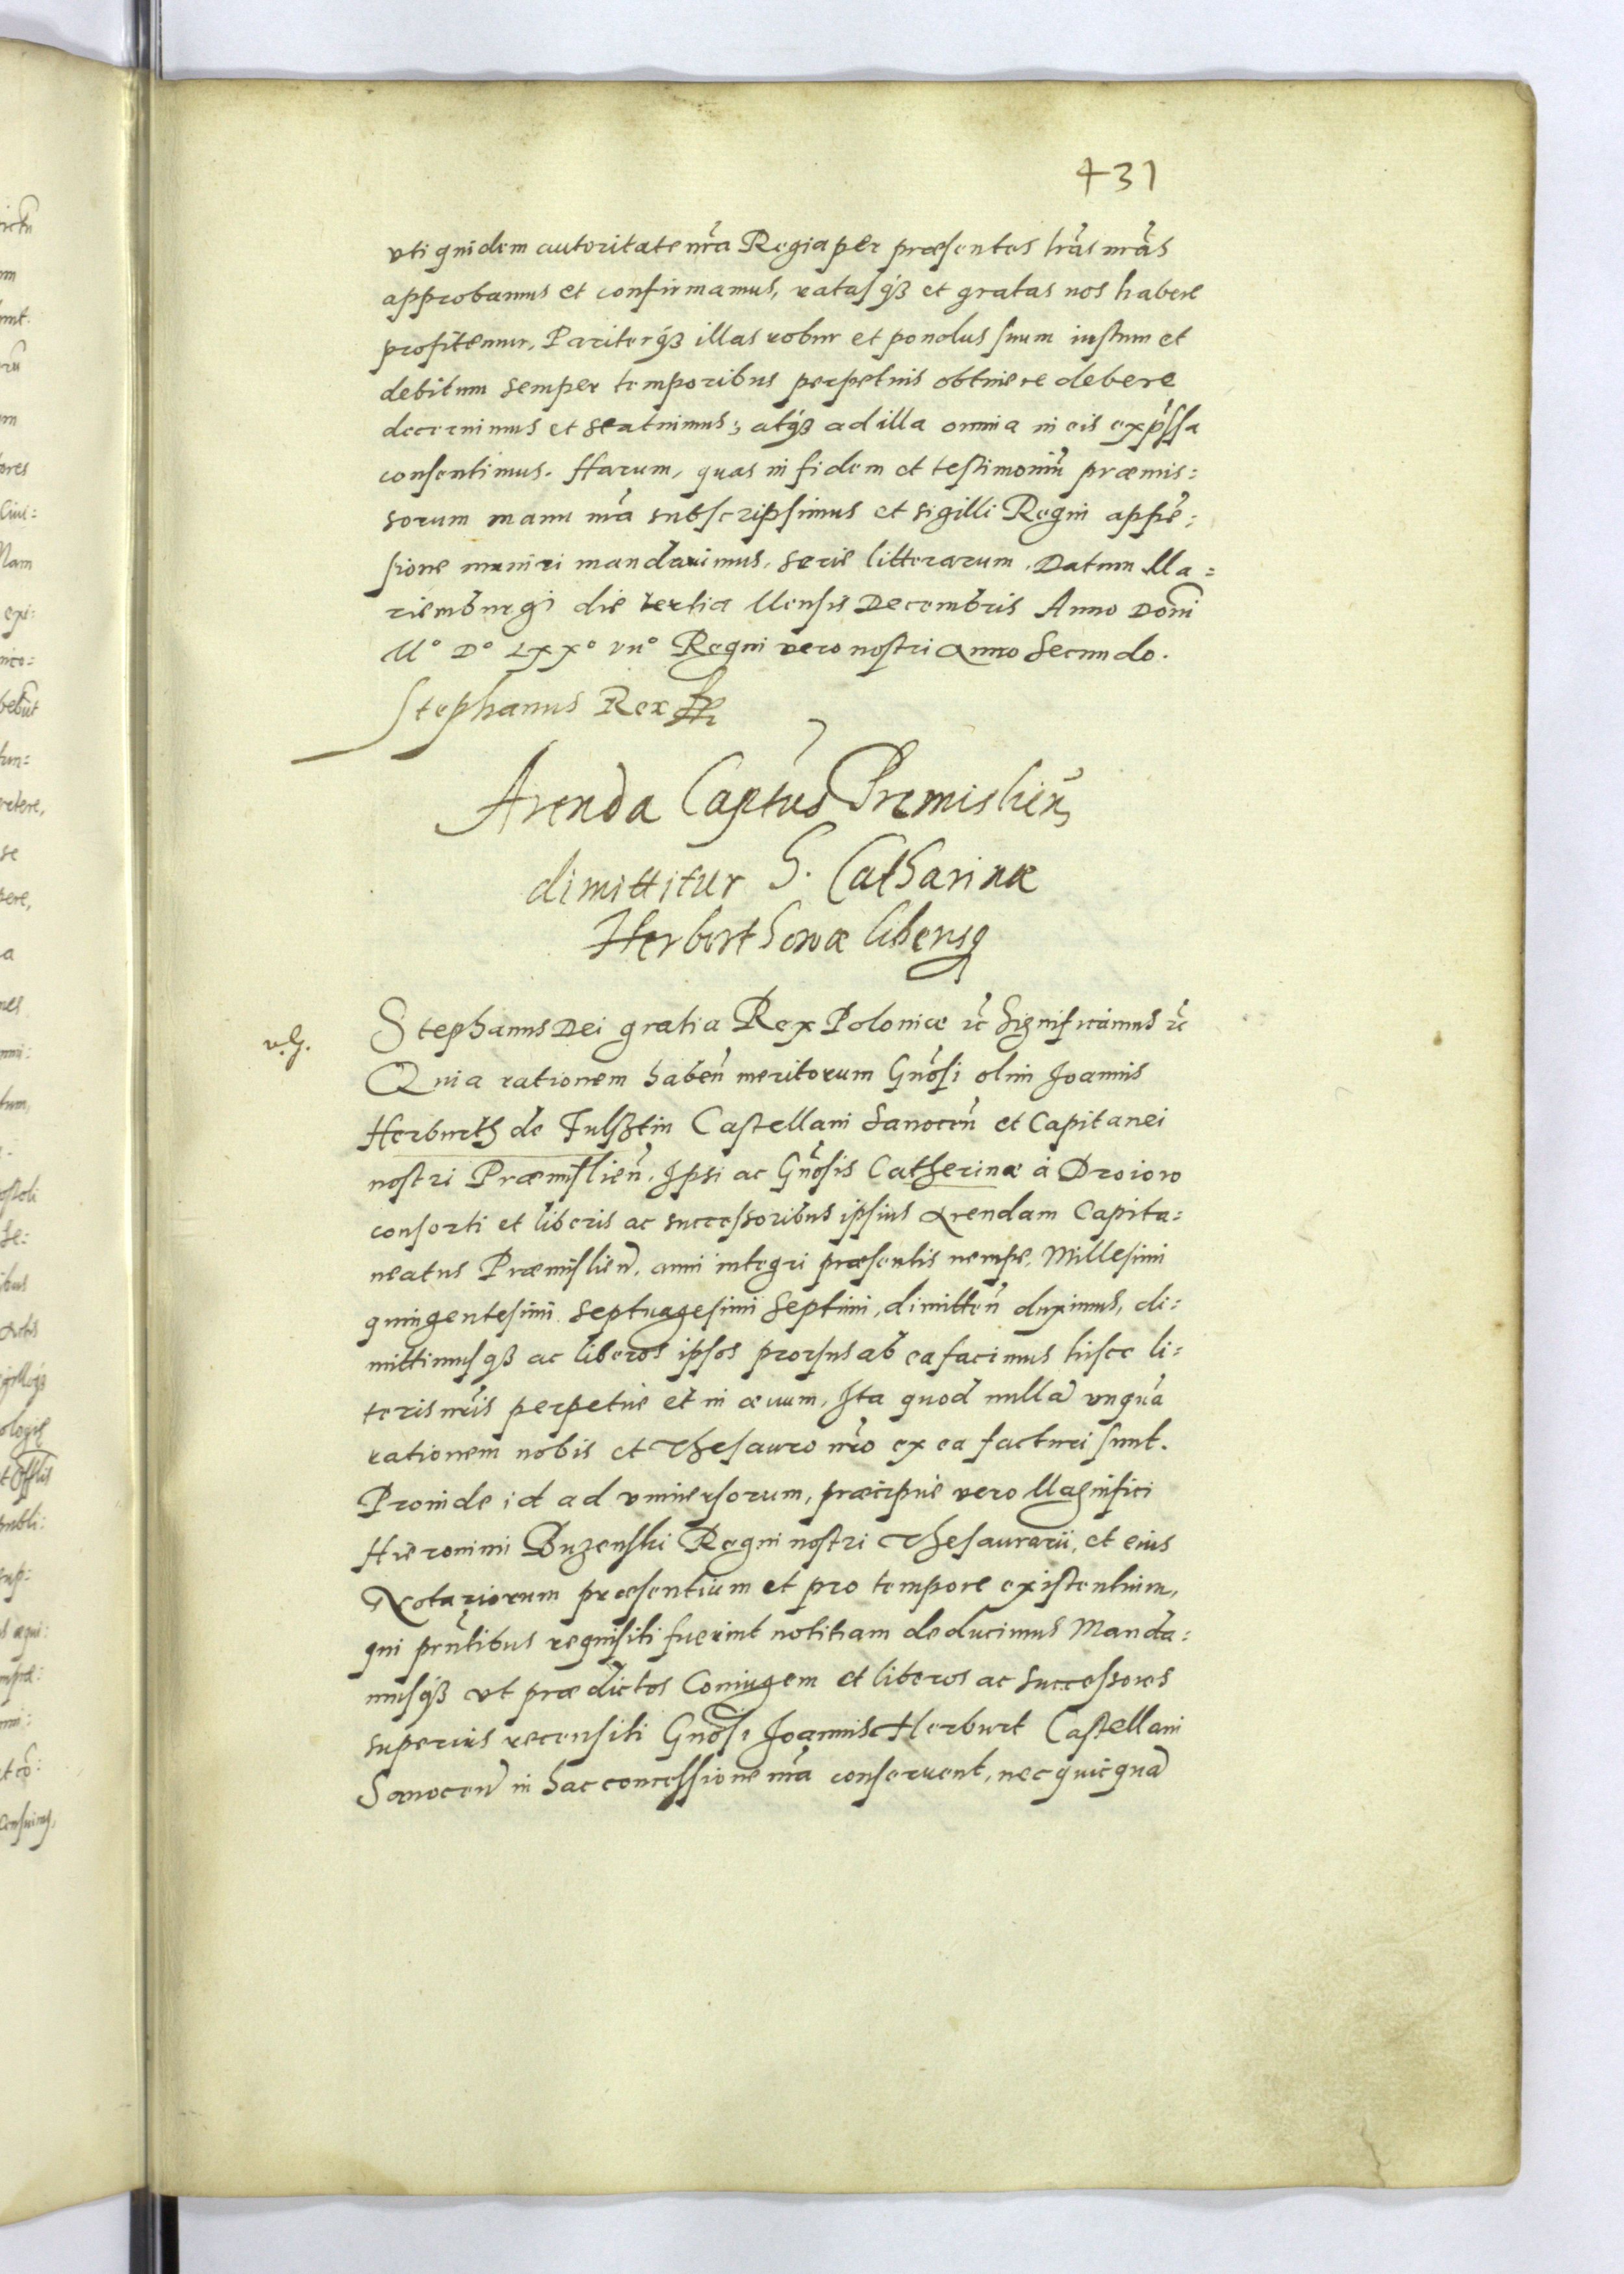 431
vti quidem autoritate nr̃a Regia per præsentes lrãs nrãs
approbamus et confirmamus, ratasq́ꝫ et gratas nos habere
profitemur, Pariterq́ꝫ illas robur et pondus suum iustum et
debitum semper temporibus perpetuis obtinere debere
decernimus et statuimus; atq́ꝫ ad illa omnia in eis exp̃ssa
consentimus. Harum, quas in fidem et testimoniũ præmis:
sorum manu nr̃a subscripsimus et sigilli Regni appẽ:
sione muniri mandauimus, serie litterarum. Datum Ma=
riemburgi die tertia Mensis Decembris Anno Dom̃i
M° D° LXX° VII° Regni vero nostri Anno Secundo.
Stephanus Rex
Arenda Captus Premislień
dimittitur G. Catharinæ
Herborthowæ liberisq
Stephanus Dei gratia Rex Poloniæ ꝛc̃ Significamus ꝛc̃
Quia rationem habeñ meritorum Gnõsi olim Joannis
Herburth de Fulsztin Castellani Sanoceñ et Capitanei
nostri Præmislieñ, Ipsi ac Gnõsis Catherinæ à Droiow
consorti et liberis ac successoribus ipsius Arendam Capita:
neatus Præmislieñ, anni integri præsentis nempe, Millesimi
quingentesimi septuagesimi Septimi, dimitteñ duximus, di:
mittimusq́ꝫ ac liberos ipsos prorsus ab ea facimus hisce li:
teris nr̃is perpetue et in æuum, Ita quod nullã vnquã
rationem nobis et Thesauro nr̃o ex ea facturi sunt.
Proinde id ad vniuersorum, præcipue vero Magnifici
Hieronimi Buzenski Regni nostri Thesaurarii, et eius
Notariorum præsentium et pro tempore existentium,
qui prñtibus requisiti fuerint notitiam deducimus Manda:
musq́ꝫ vt prædictos Coniugem et liberos ac successores
superius recensiti Gnõsi Joannis Herburt Castellani
Sanoceñ in hac concessione nr̃a conseruent, nec quicquã